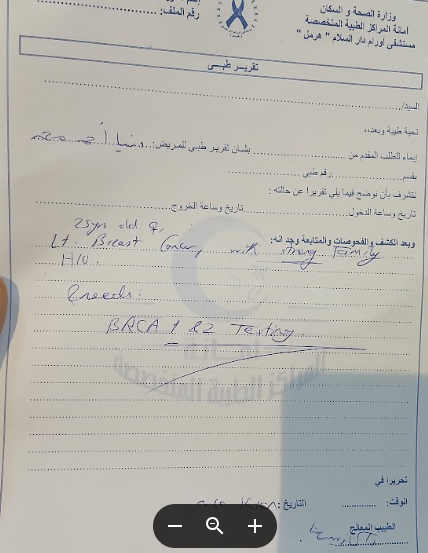 وزارة الصحة و السكان
أمانة المراكز الطبية المتخصصة
مستشفى أورام دار السلام " هرمل "
رقم الملف:
تقرير طبى
السيد/
تحية طيبة وبعد،،
إيماء للطلب المقدم من بشأن تقرير طبي للمريض: دنيا أحمد محمد
بقسم رقم طبي
نتشرف بأن نوضح فيما يلي تقريرا عن حالته:
تاريخ وساعة الدخول تاريخ وساعة الخروج
وبعد الكشف والفحوصات والمتابعة وجد انه:
old ♀,
Lt. Breast Cancer with strong Family
H/O.
needs:
BRCA 1 & 2 Testing
أمانة
المراكز الطبية المتخصصة
تحريرا في
الوقت: التاريخ:
الطبيب المعالج